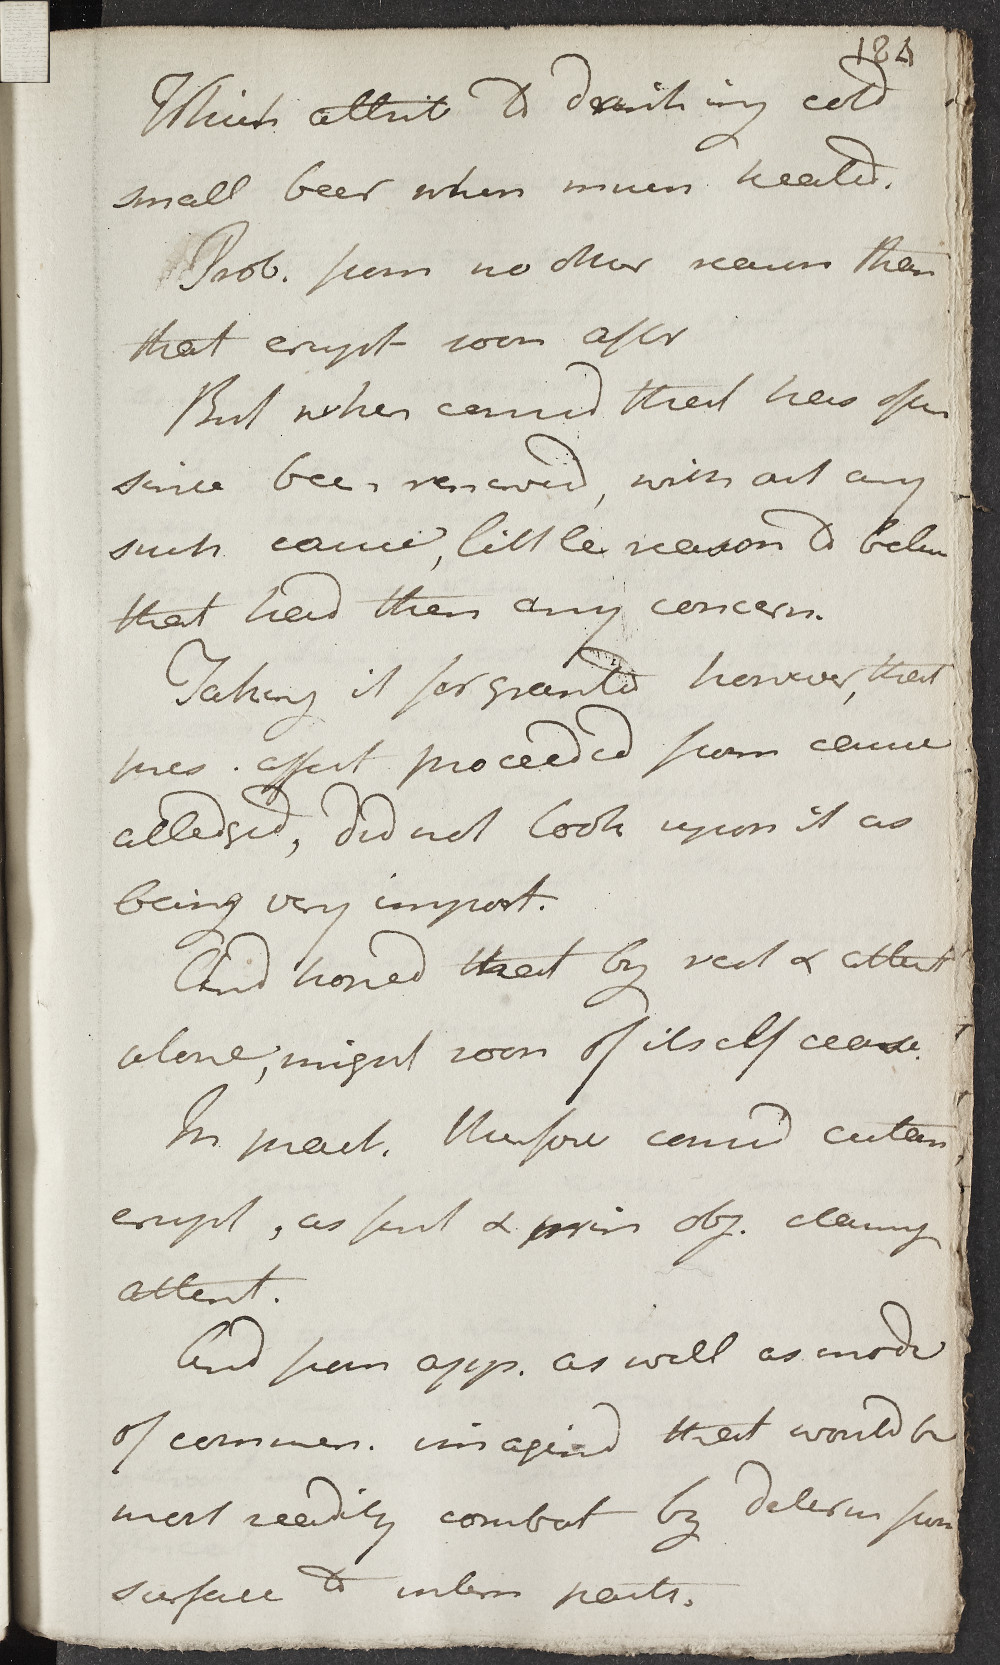 184
Which attrib to drinking cold
small beer when much heated.
Prob. from no other reason than
that erupt soon after
But when consid that has often
since been renewed, without any
such cause, little reason to believ
that had then any concern.
Taking it for grantd however, that
pres. affect proceeded from cause
alledgid, did not look upon it as
being very import.
And hoped that by rest & attent
alone, might soon of itself cease.
In pract. therefore consid cutan
erupt, as first & prin obj. claiming
attent.
And from app. as well as mode
of commen. imagind that would be
most readily combat by determ from
surface to intern parts.